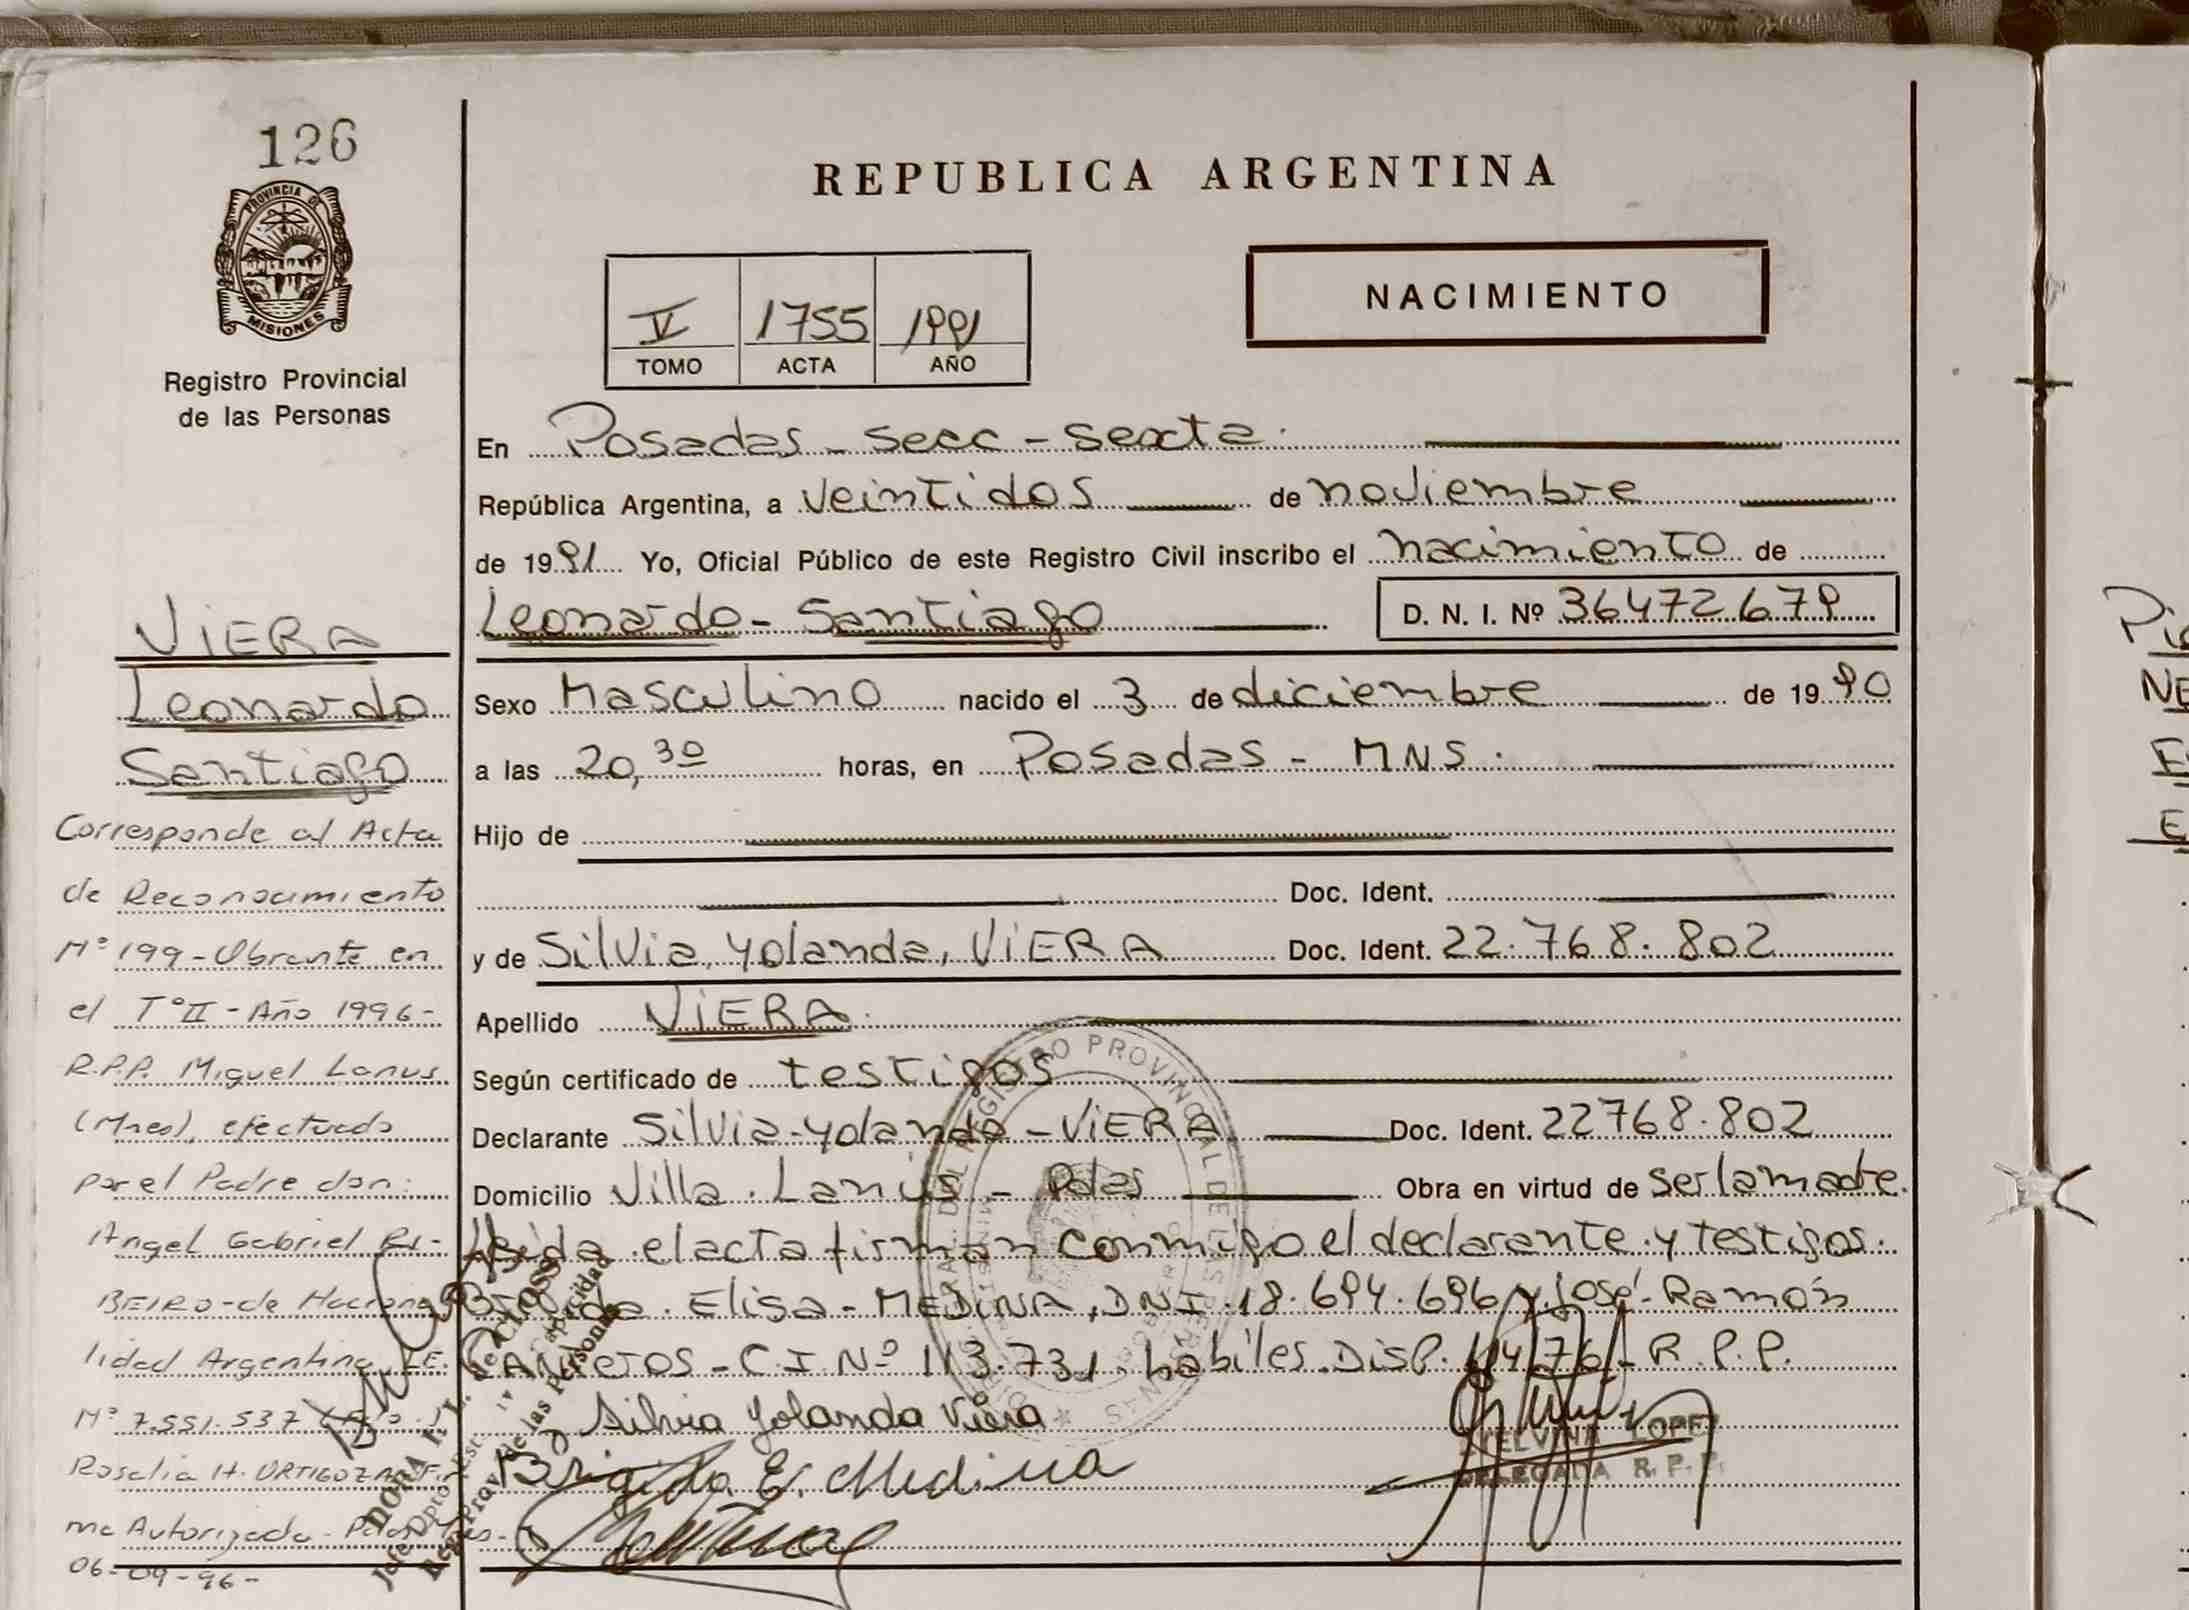 126
PROVINCIA D.
MISIONES
Registro Provincial
de las Personas
REPUBLICA ARGENTINA
V 1755 1991
TOMO ACTA AÑO
NACIMIENTO
En Posadas - Secc - Sexta.
República Argentina, a veintidos de noviembre
de 1991 Yo, Oficial Público de este Registro Civil inscribo el nacimiento de
Leonardo - Santiago D. N. I. Nº 36472679
Sexo Masculino nacido el 3 de diciembre de 1990
a las 20,30 horas, en Posadas - MNS.
Hijo de
Doc. Ident.
y de Silvia, Yolanda, VIERA Doc. Ident. 22.768.802
Apellido VIERA.
Según certificado de testigos
Declarante Silvia-Yolanda-VIERA Doc. Ident. 22768.802
Domicilio Villa. Lanús - Pdas Obra en virtud de ser la madre.
Leida el acta firman conmigo el declarante y testigos.
Elisa - MEDINA, DNI 18.694.696 y José Ramón
C I Nº 113.731 habiles Disp. R.P.P.
Silvia Yolanda Viera
Brigida E. Medina
LOPEZ
DELEGADA R.P.P.
VIERA
Leonardo
Santiago
Corresponde al Acta
de Reconocimiento
Nº 199 - Obrante en
el Tº II - Año 1996 -
R.P.P. Miguel Lanus
(Mnes), efectuado
por el Padre don:
Angel Gabriel RI-
BEIRO - de Naciona
lidad Argentina, L.E.
Nº 7.551.537
Rosalia H. ORTIGOZA Fir
ma Autorizada - Pdas
06-09-96-
DORA
Reg. Prov. de las Personas
REGISTRO PROVINCIAL DE LAS PERSONAS
Pi
NE
E
E